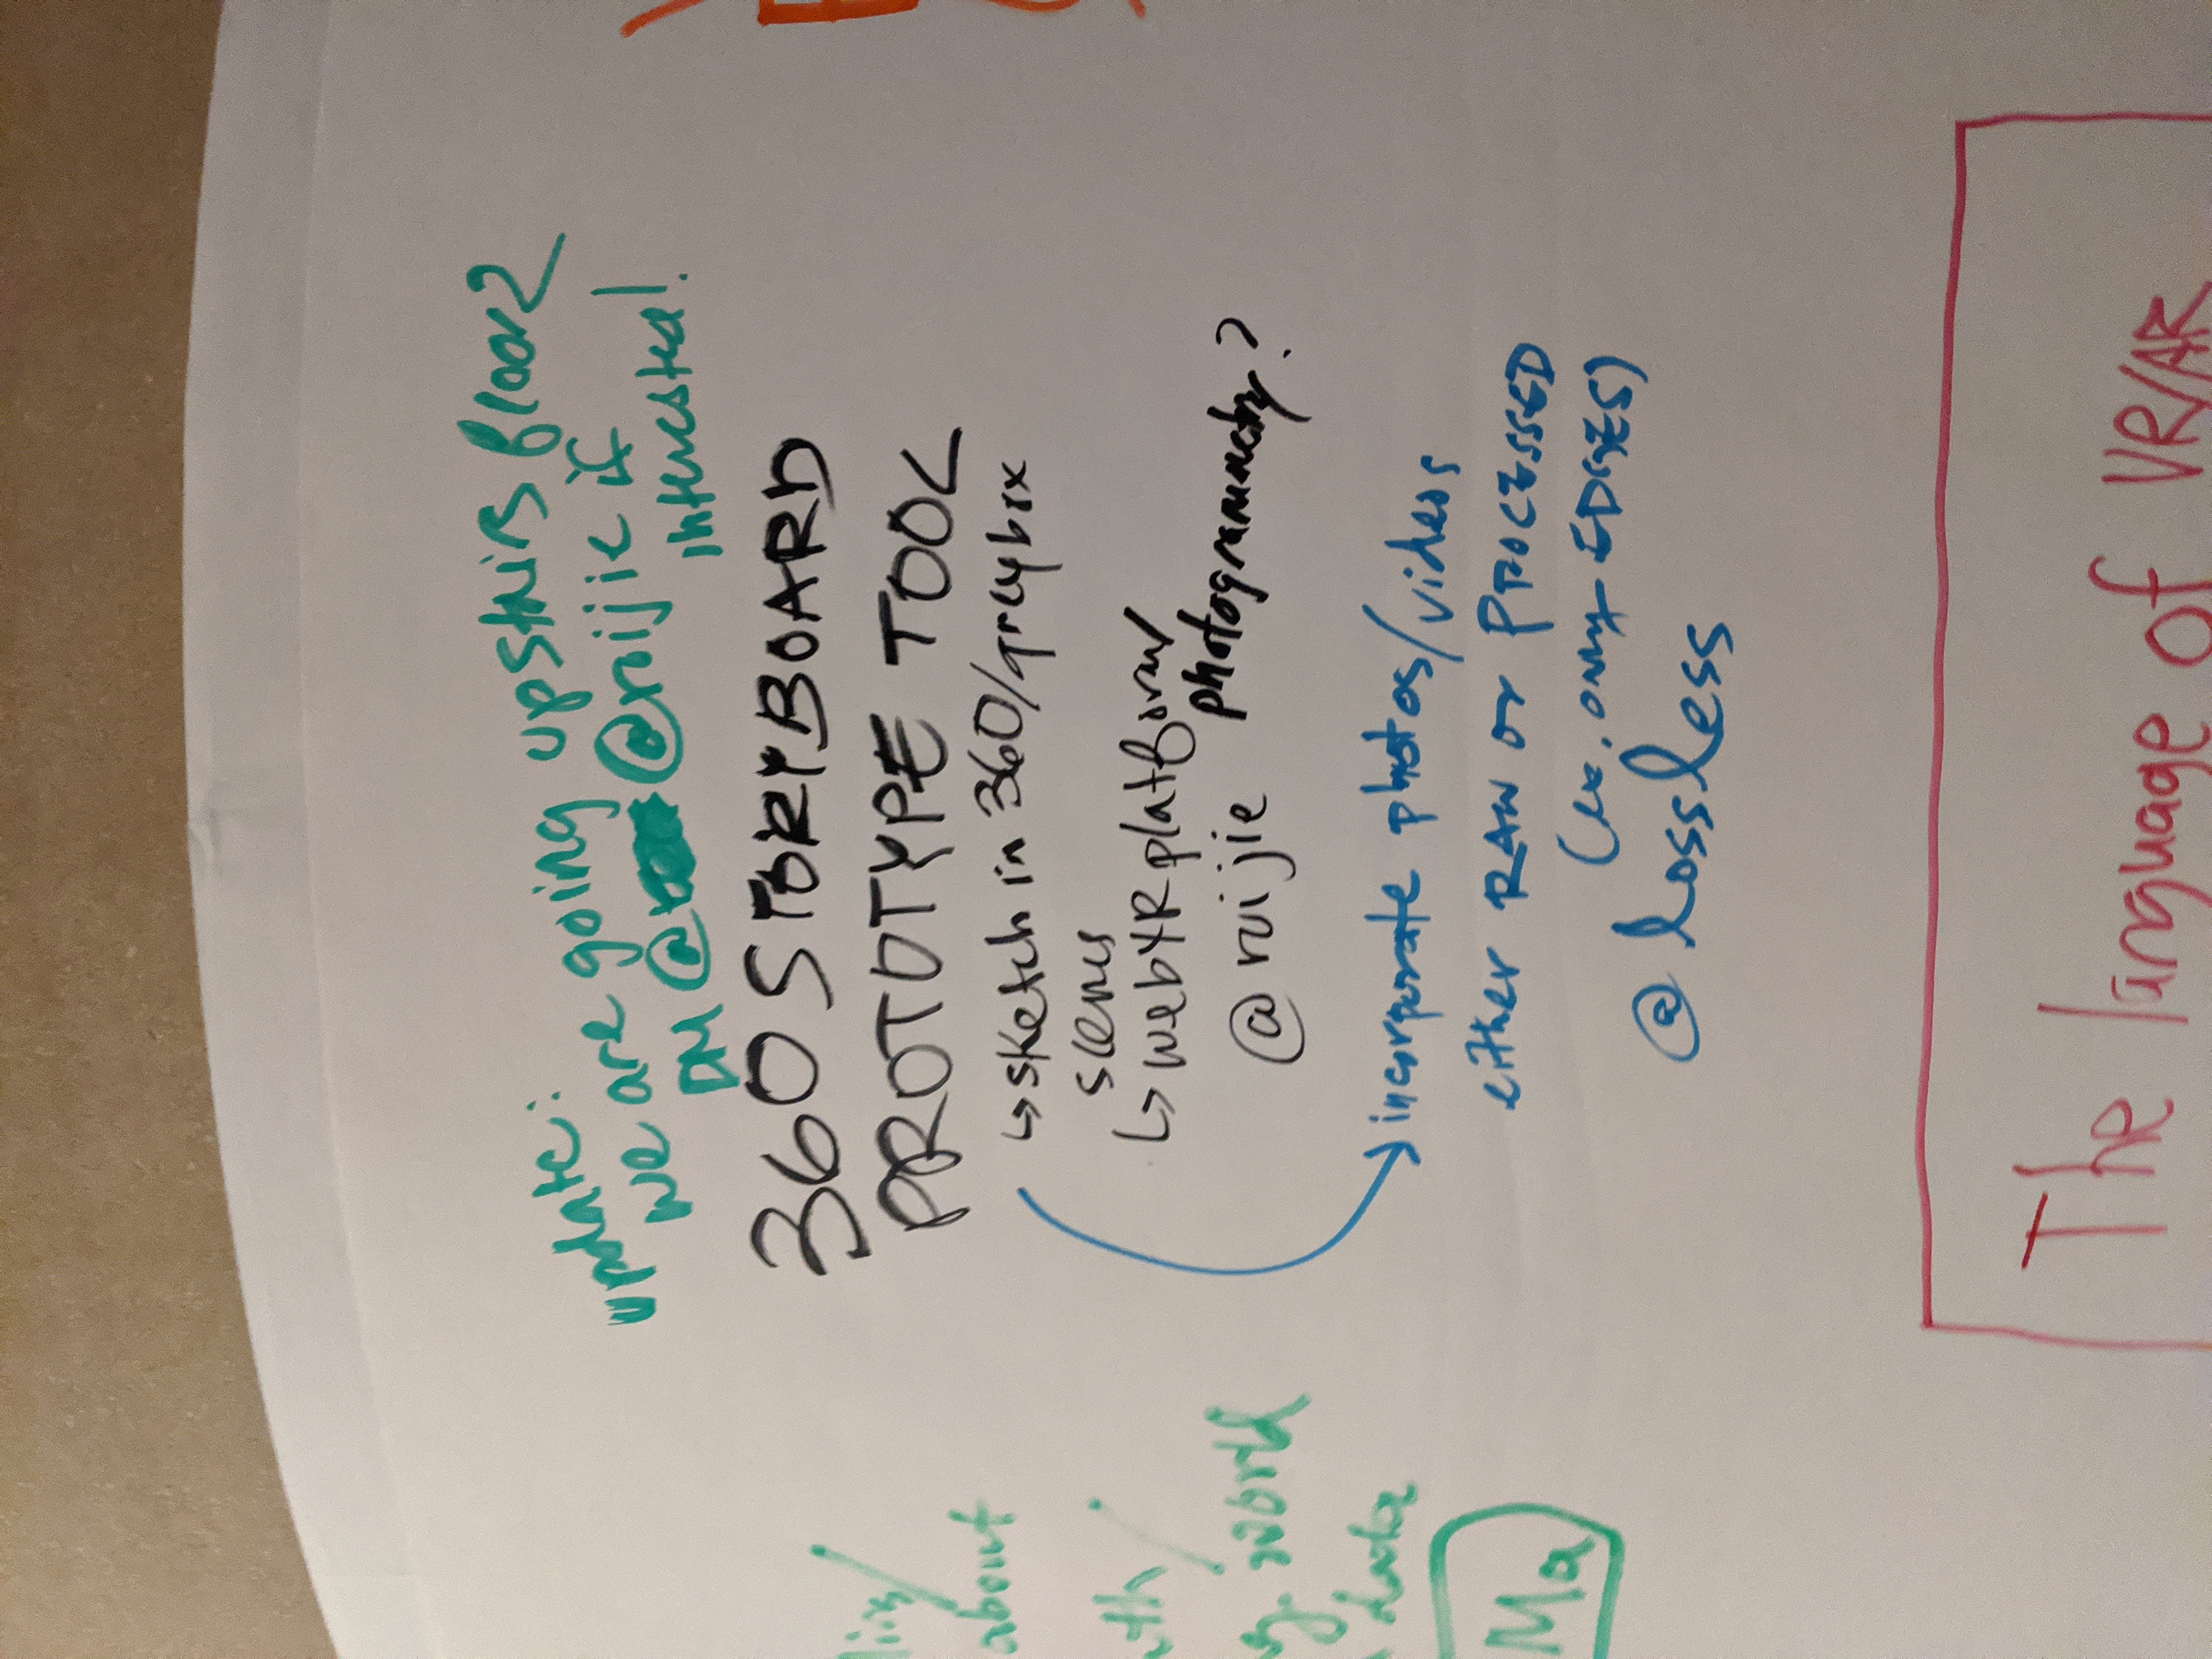 update: we are going upstairs floor 2
DM @ruijie if
interested!
360 STORYBOARD
PROTOTYPE TOOL
↳ sketch in 360/greybox
scenes
↳ webXR platform/
photogrammetry?
@ruijie
→ incorporate photos/videos
either RAW or PROCESSED
(ex. only EDGES)
@ lossless
The language of VR/AR
about
world
data
Ma